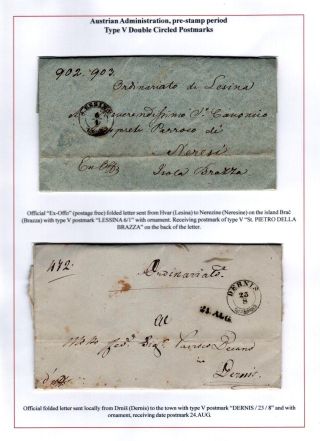 Austrian Administration, pre-stamp period
Type V Double Circled Postmarks
902. 903
Ordinariato di Lesina
LESINA
6
1
Al
Reverendissimo Sr. Canonico
Parroco di
Neresi
Ex Offo
Isola Brazza
Official "Ex-Offo" (postage free) folded letter sent from Hvar (Lesina) to Nerezine (Neresine) on the island Brač
(Brazza) with type V postmark "LESSINA 6/1" with ornament. Receiving postmark of type V "St. PIETRO DELLA
BRAZZA" on the back of the letter.
472.
Ordinariato
DERNIS
23
8
24 AUG.
Al
Dernis
Official folded letter sent locally from Drniš (Dernis) to the town with type V postmark "DERNIS / 23 / 8" and with
ornament, receiving date postmark 24.AUG.